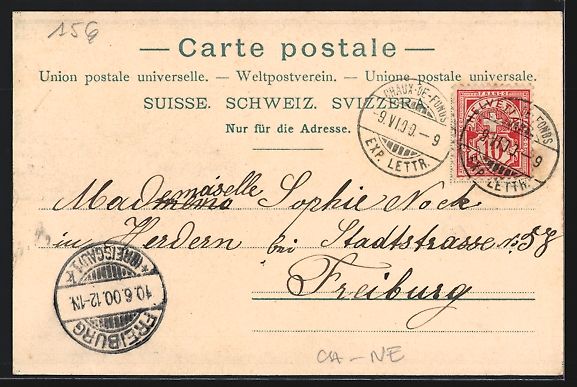 156
— Carte postale —
Union postale universelle. — Weltpostverein. — Unione postale universale.
SUISSE. SCHWEIZ. SVIZZERA.
Nur für die Adresse.
CHAUX-DE-FONDS
-9.VI.00.-9
EXP. LETTR.
HELVETIA
FRANCO
10
-9
EXP. LETTR.
Mademoiselle Sophie Nock
in Herdern bei Stadtstrasse No 58
Freiburg
*(BREISGAU)*
10.6.00.12-1N.
FREIBURG
CH - NE